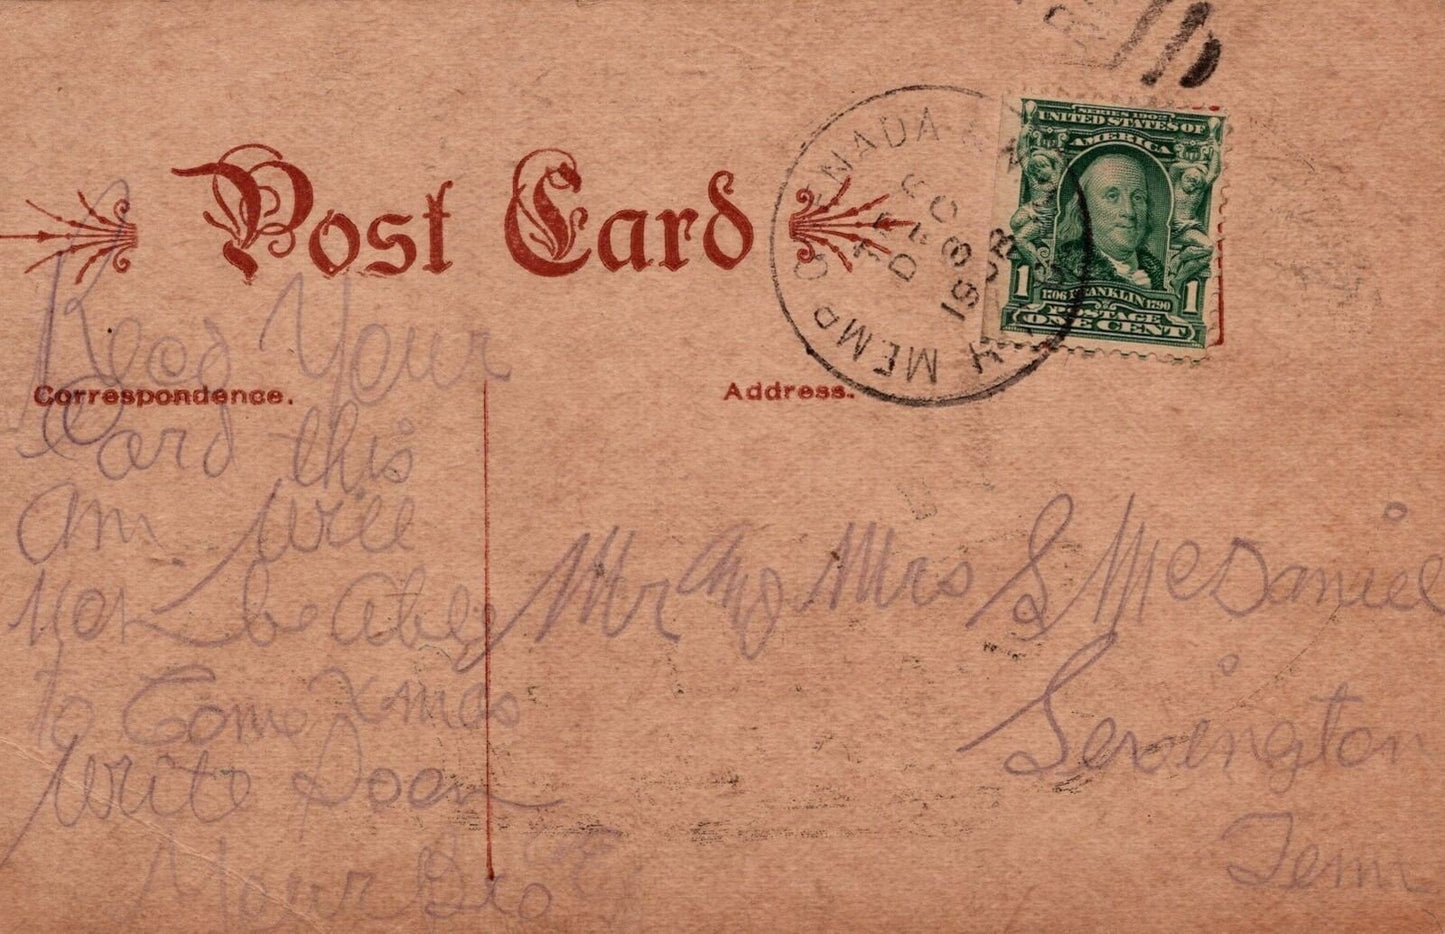 Post Card
SERIES 1902
UNITED STATES OF
AMERICA
1 1706 FRANKLIN 1790 1
POSTAGE
ONE CENT
GRENADA & MEMP
DEC
8
190
Correspondence.
Address.
Recd Your
Card this
am. Will
Not be Able
to Come Xmas
Write Soon
Your Bro
Mr and Mrs S McDaniel
Lexington
Tenn